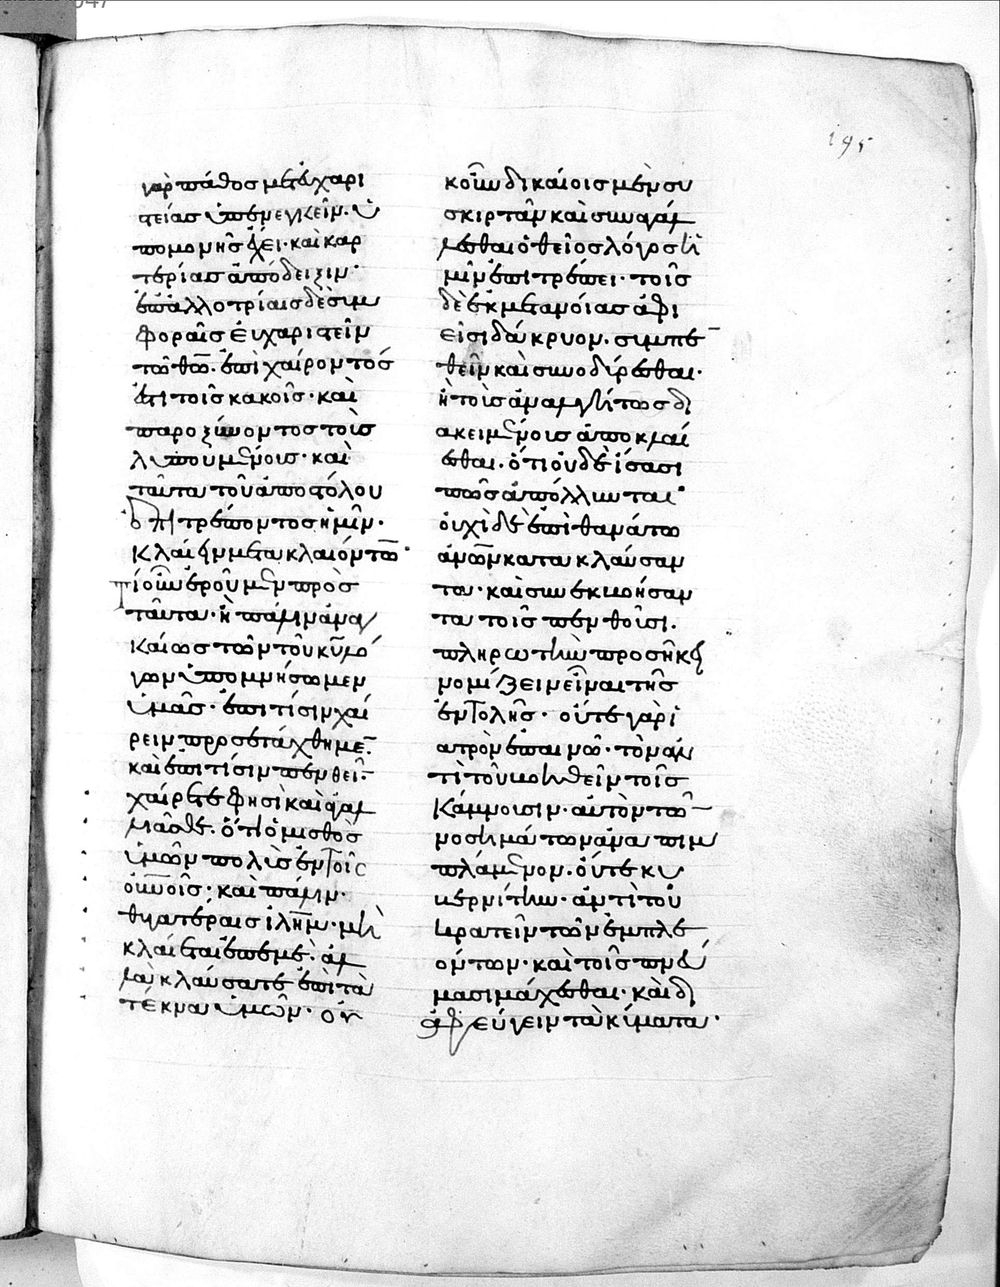 195
γὰρ πάθος μετευχαρι
στείας ὑπενεγκεῖν. ὑ
πομονῆς ἔχει· καὶ καρ
τερίας ἀπόδειξιν·
ἐπαλλοτρίαις δὲ συμ
φοραῖς εὐχαριστεῖν
τῶ θῶ. ἐπιχαίροντός
ἐστι τοῖς κακοῖς· καὶ
παροξύνοντος τοὺς
λυπουμένους· καὶ
ταῦτα τοῦ ἀποστόλου
ἐπιτρέποντος ἡμῖν·
κλαίειν μετα κλαιόντων·
Τί οὖν ἐροῦμεν πρὸς
ταῦτα· ἢ πάλιν ἀναγ
καίως τῶν τοῦ κυ λό
γων ὑπομνήσωμεν
ὑμᾶς· ἐπι τίσιν χαί
ρειν προσετάχθημεν·
καὶ ἐπι τίσιν πενθεῖν·
χαίρετε φησὶ καὶ ἀγαλ
λιᾶσθε. ὅτι ὁ μισθὸς
ὑμῶν πολὺς ἐν τοῖς
οὐνοῖς· καὶ πάλιν·
θυγατέραις ιλημ· μὴ
κλαίεται ἐπεμε. ἀλ
λὰ κλαύσατε ἐπι τὰ
τέκνα ὑμῶν· οὐ
κοῦν δικαίοις μὲν συ
σκιρτᾶν καὶ συναγάλ
λεσθαι ὁ θεῖος λόγος ἡ
μῖν ἐπιτρέπει· τοῖς
δὲ ἐκ μετανοίας ἀφι
εῖσι δάκρυον. συμπεν
θεῖν καὶ συνοδύρεσθαι·
ἢ τοὺς ἀναλγήτως δι
ακειμένους ἀποκλαί
εσθαι. ὅτι οὐδὲ ἴσασι
πῶς ἀπόλλυνται·
οὐχὶ δὲ ἐπι θανάτω
ἀνῶν κατακλαύσαν
τα· καὶ συνεκβοήσαν
τα τοῖς πενθοῦσι.
πληρωτὴν προσῆκεν
νομίζειν εἶναι τῆς
ἐντολῆς· οὔτε γὰρ ἰ
ατρὸν ἐπαινῶ· τὸν ἀν
τὶ τοῦ βοηθεῖν τοῖς
κάμνουσιν· αὐτὸν τῶν
νοσημάτων ἀναπιμ
πλάμενον. οὔτε κυ
βερνήτην. ἀντὶ τοῦ
κρατεῖν τῶν ἐμπλε
όντων· καὶ τοῖς πνεύ
μασι μάχεσθαι· καὶ δι
αφεύγειν τὰ κύματα·